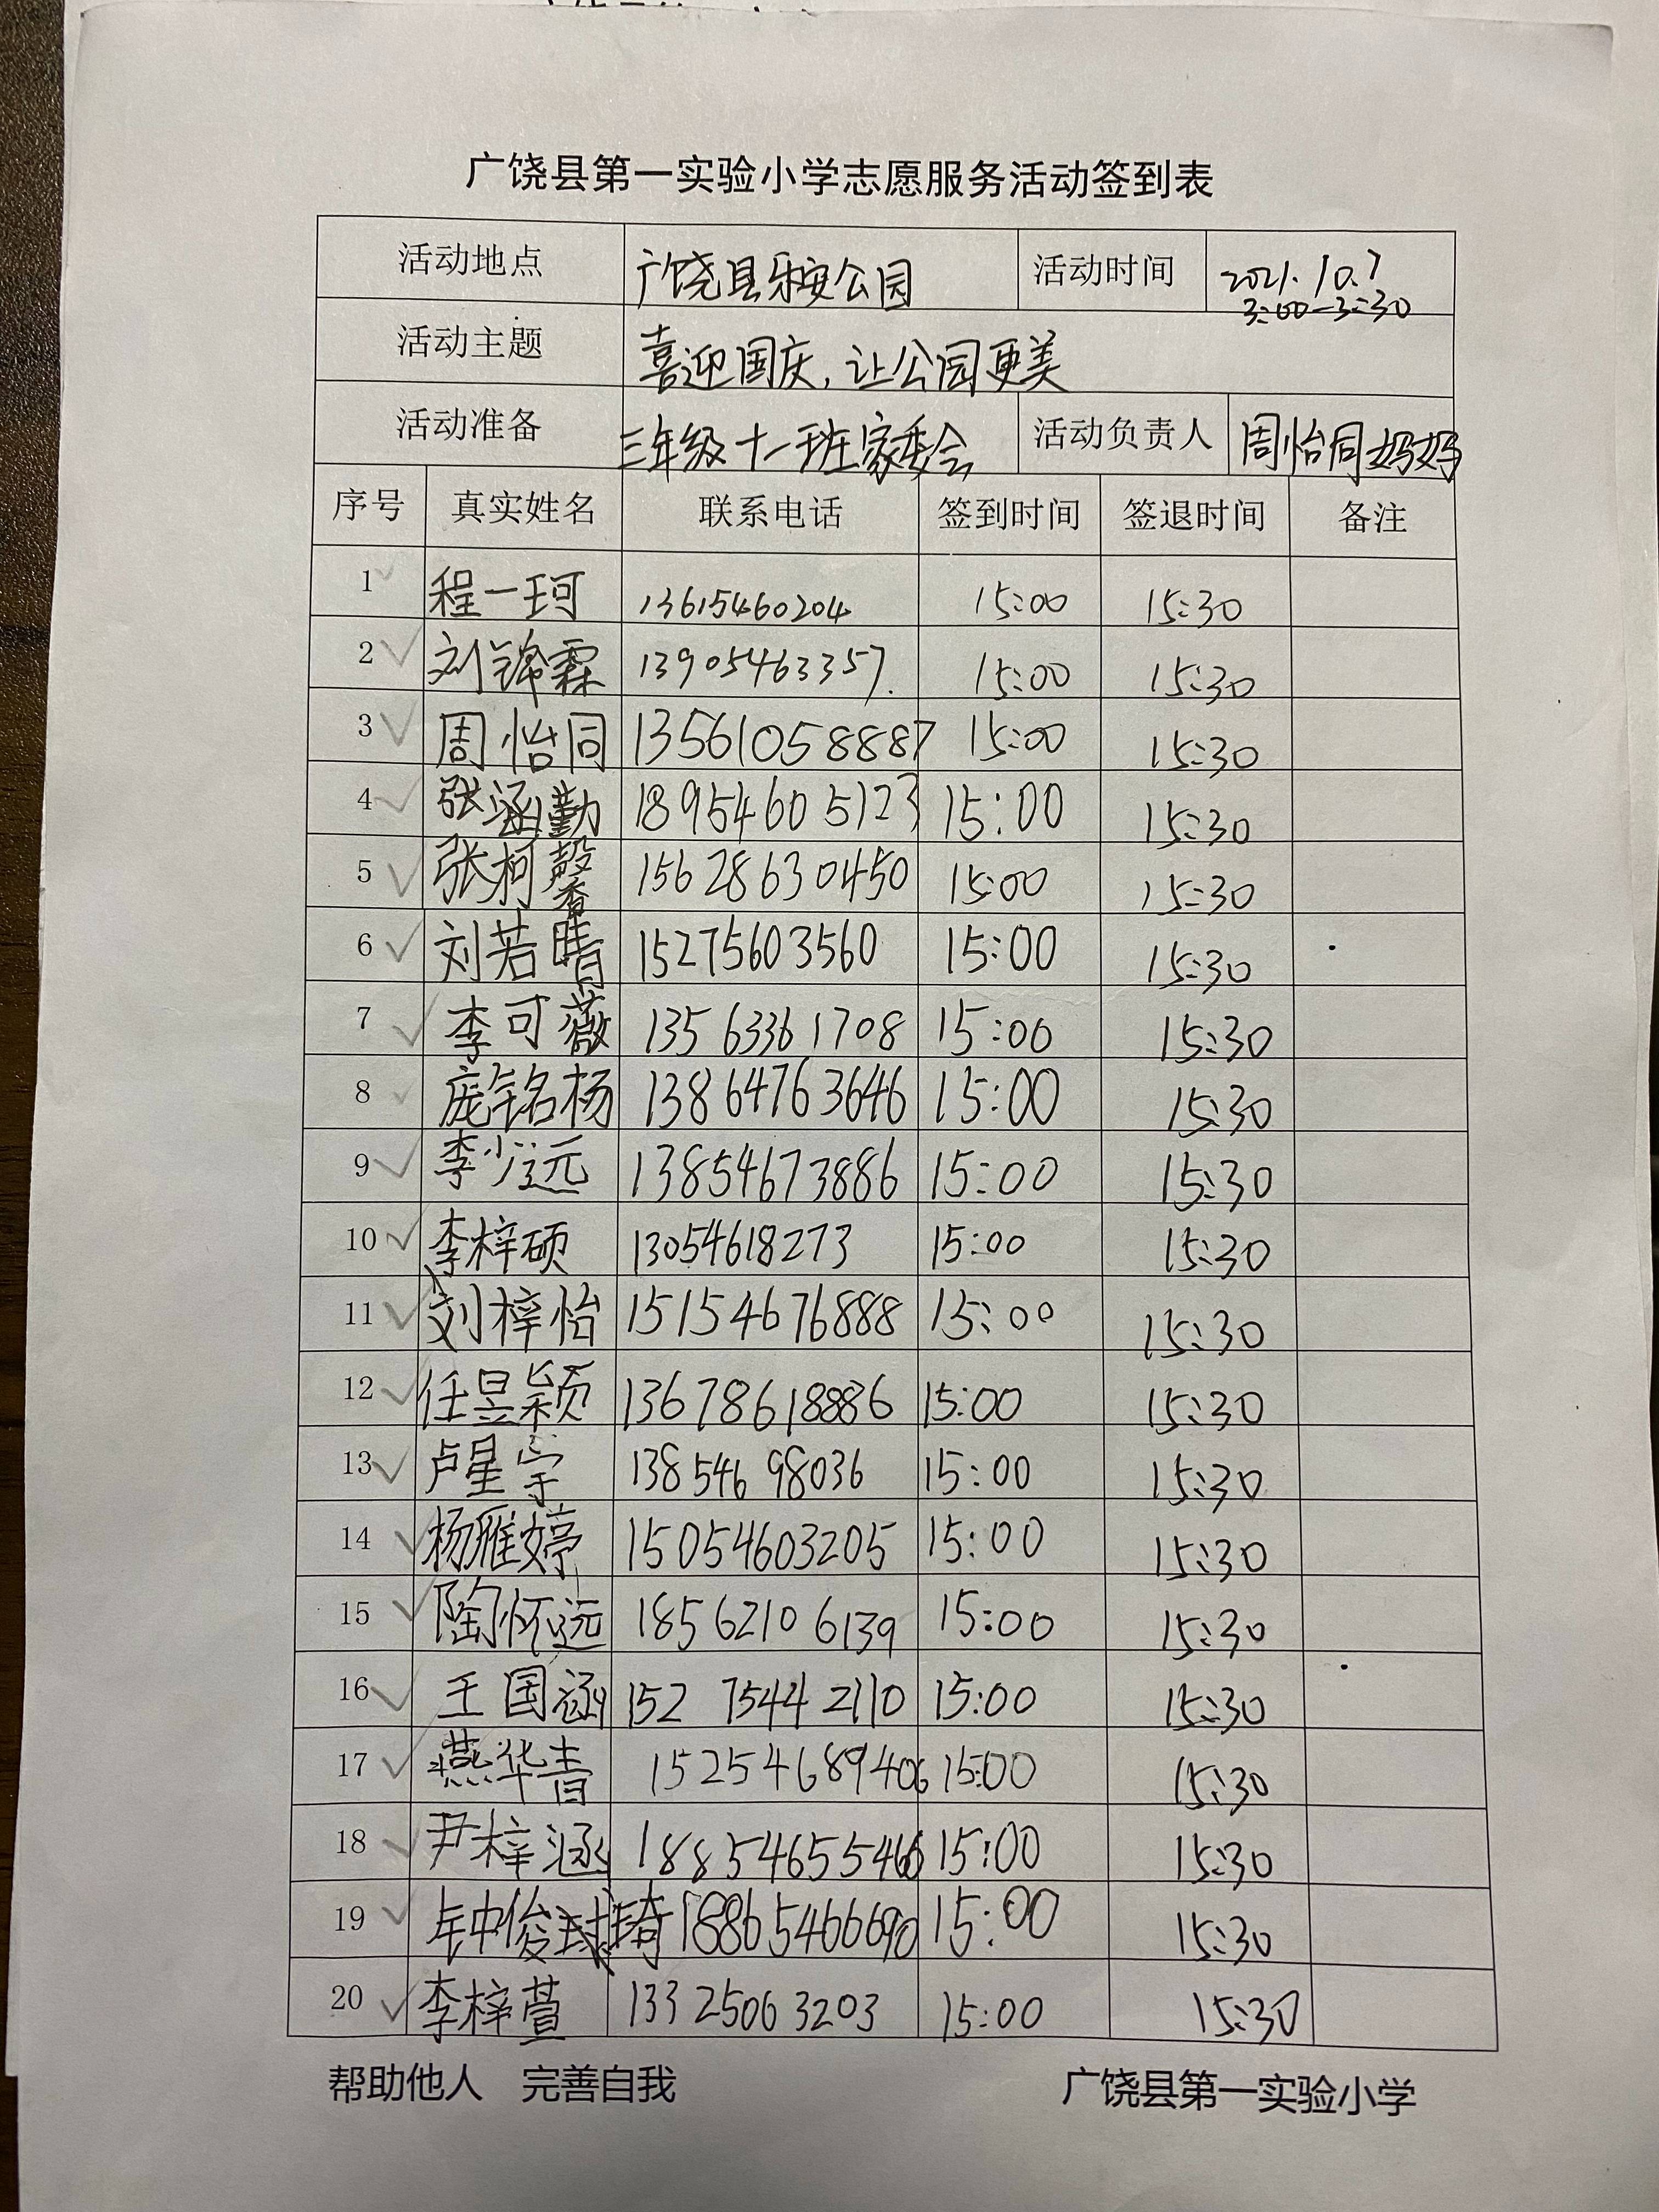 广饶县第一实验小学志愿服务活动签到表
活动地点 广饶县乐安公园 活动时间 2021.10.7 3:00-3:30
活动主题 喜迎国庆,让公园更美
活动准备 三年级十一班家委会 活动负责人 周怡同妈妈
序号 真实姓名 联系电话 签到时间 签退时间 备注
1 程一珂 13615460204 15:00 15:30
2 刘锦霖 13905463357. 15:00 15:30
3 周怡同 13561058887 15:00 15:30
4 张涵勤 18954605123 15:00 15:30
5 张柯馨 15628630450 15:00 15:30
6 刘若晴 15275603560 15:00 15:30
7 李可薇 13563361708 15:00 15:30
8 庞铭杨 13864763646 15:00 15:30
9 李少远 13854673886 15:00 15:30
10 李梓硕 13054618273 15:00 15:30
11 刘梓怡 15154676888 15:00 15:30
12 任昱颖 13678618886 15:00 15:30
13 卢星宇 13854698036 15:00 15:30
14 杨雁婷 15054603205 15:00 15:30
15 陶怀远 18562106139 15:00 15:30
16 王国涵 152 7544 2110 15:00 15:30
17 燕华青 15254689406 15:00 15:30
18 尹梓涵 18854655466 15:00 15:30
19 钟俊琦 18865466690 15:00 15:30
20 李梓萱 13325063203 15:00 15:30
帮助他人 完善自我 广饶县第一实验小学